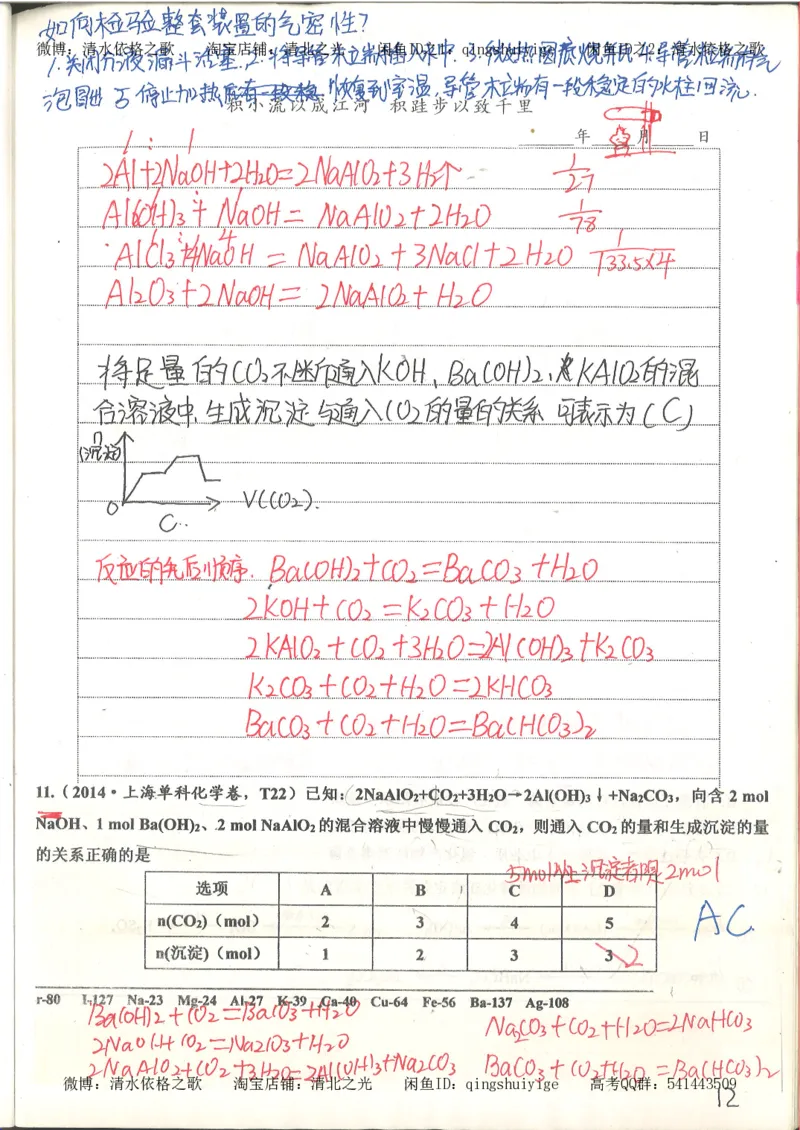 如何检验整套装置的气密性?
微博：清水依格之歌 淘宝店铺：清北之光 闲鱼ID之1：qingshuiyige 闲鱼ID之2：清水依格之歌
1.关闭分液漏斗活塞.2.将导管末端插入水中.3.微热圆底烧瓶4.导管末端有气
泡冒出 5.停止加热 恢复到室温,导管末端有一段稳定的水柱回流.
积小流以成江河 积跬步以致千里
年 月 日
1 : 1
2Al+2NaOH+2H₂O=2NaAlO₂+3H₂↑ 1/27
Al(OH)₃+NaOH=NaAlO₂+2H₂O 1/78
AlCl₃+4NaOH=NaAlO₂+3NaCl+2H₂O 1/133.5×4
Al₂O₃+2NaOH=2NaAlO₂+H₂O
将足量的CO₂不断通入KOH、Ba(OH)₂、KAlO₂的混
合溶液中.生成沉淀与通入CO₂的量的关系可表示为(C)
n
(沉淀)
0
V(CO₂).
C..
反应的先后顺序. Ba(OH)₂+CO₂=BaCO₃+H₂O
2KOH+CO₂=K₂CO₃+H₂O
2KAlO₂+CO₂+3H₂O=2Al(OH)₃+K₂CO₃
K₂CO₃+CO₂+H₂O=2KHCO₃
BaCO₃+CO₂+H₂O=Ba(HCO₃)₂
11.（2014·上海单科化学卷，T22）已知：2NaAlO₂+CO₂+3H₂O→2Al(OH)₃↓+Na₂CO₃，向含 2 mol
NaOH、1 mol Ba(OH)₂、2 mol NaAlO₂ 的混合溶液中慢慢通入 CO₂，则通入 CO₂ 的量和生成沉淀的量
的关系正确的是
5mol时沉淀有2mol
选项 A B C D
n(CO₂)（mol） 2 3 4 5
n(沉淀)（mol） 1 2 3 3 2
AC
r-80 I-127 Na-23 Mg-24 Al-27 K-39 Ca-40 Cu-64 Fe-56 Ba-137 Ag-108
Ba(OH)₂+CO₂=BaCO₃+H₂O
Na₂CO₃+CO₂+H₂O=2NaHCO₃
2NaOH+CO₂=Na₂CO₃+H₂O
2NaAlO₂+CO₂+3H₂O=2Al(OH)₃+Na₂CO₃ BaCO₃+CO₂+H₂O=Ba(HCO₃)₂
微博：清水依格之歌 淘宝店铺：清北之光 闲鱼ID：qingshuiyige 高考QQ群：541443509
12